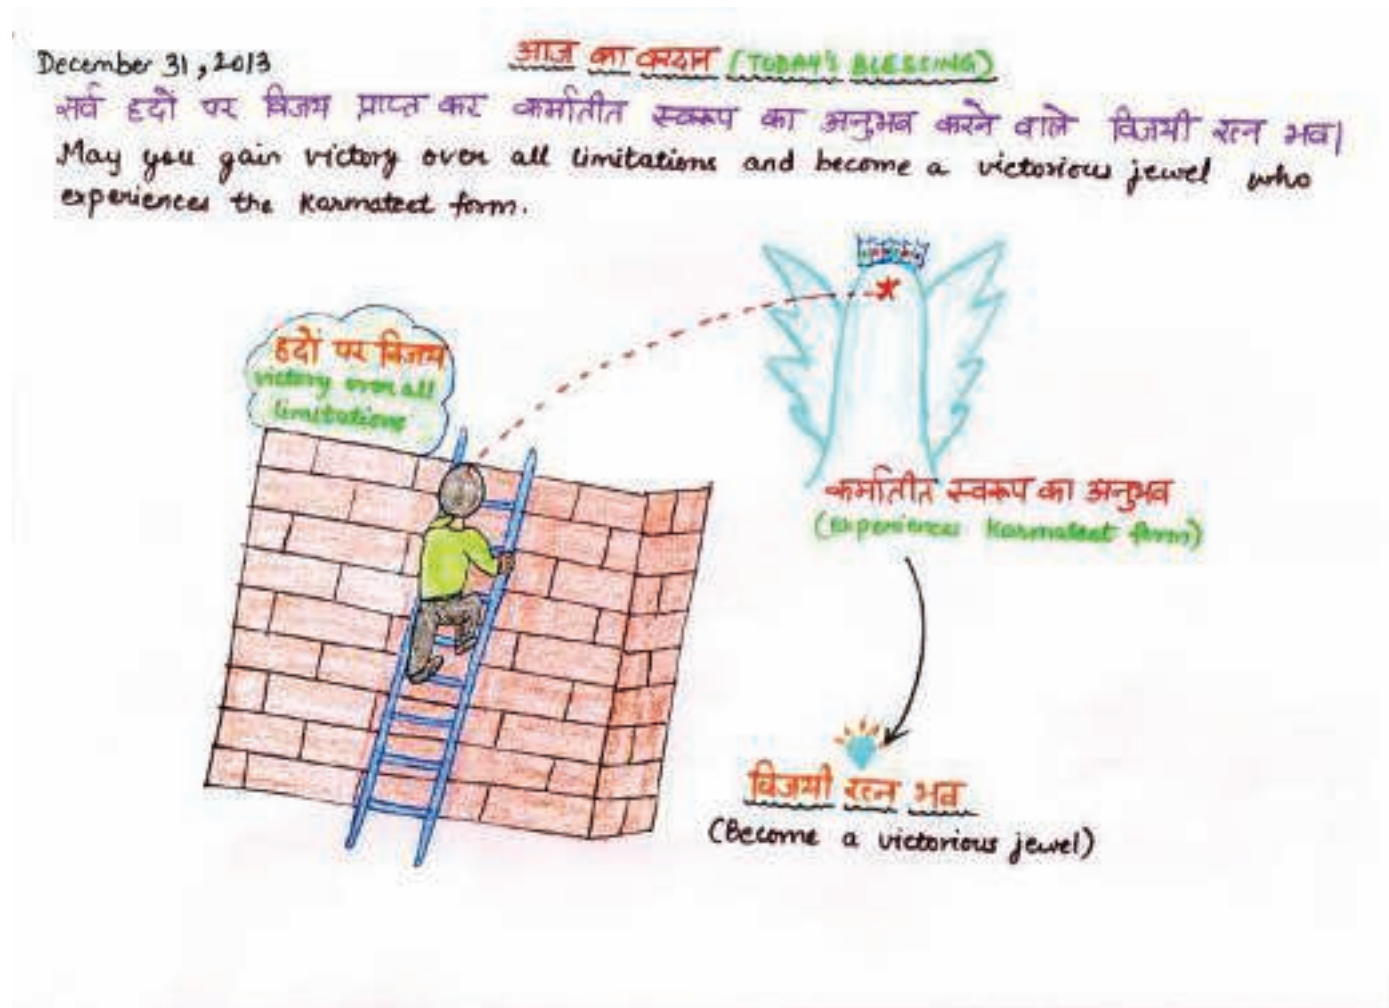 December 31, 2013
आज का वरदान (TODAY'S BLESSING)
सर्व हदों पर विजय प्राप्त कर कर्मातीत स्वरूप का अनुभव करने वाले विजयी रत्न भव|
May you gain victory over all limitations and become a victorious jewel who
experiences the Karmateet form.
हदों पर विजय
victory over all
limitations
कर्मातीत स्वरूप का अनुभव
(experiences Karmateet form)
विजयी रत्न भव
(Become a victorious jewel)